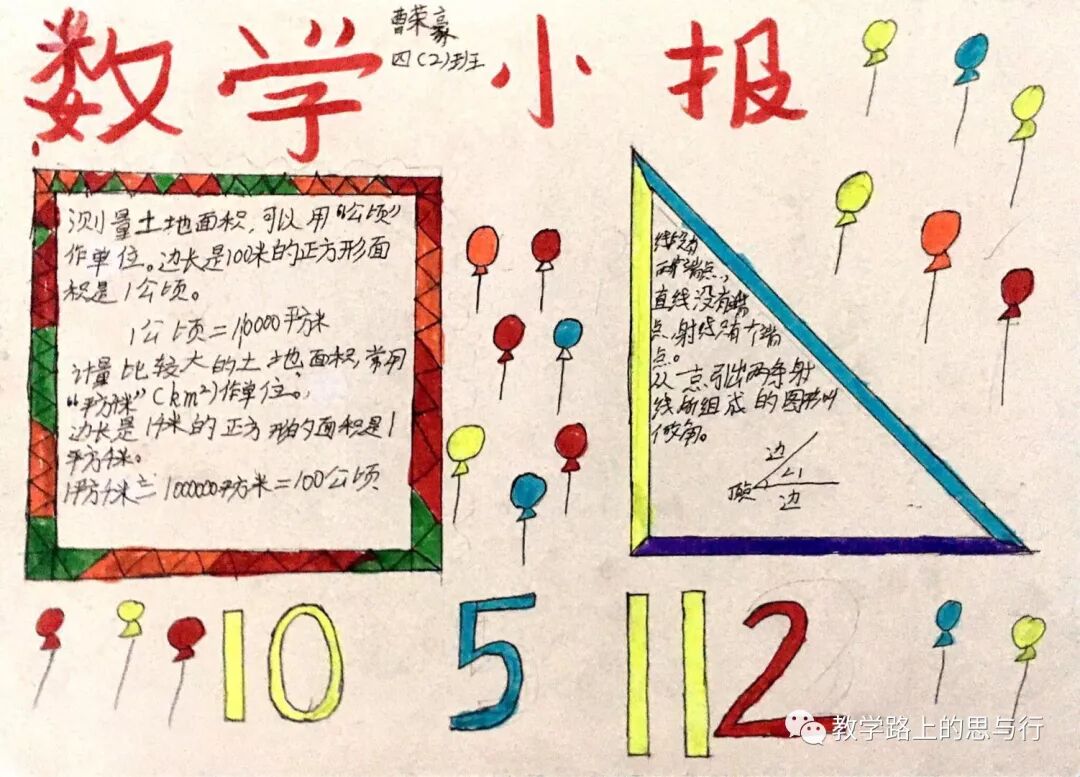 数学小报
曹荣豪
四(2)班
测量土地面积,可以用“公顷”
作单位。边长是100米的正方形面
积是1公顷。
1公顷=10000平方米
计量比较大的土地面积,常用
“平方千米”(km²)作单位。
边长是1千米的正方形的面积是1
平方千米。
1平方千米=1000000平方米=100公顷
线段有
两个端点,
直线没有端
点,射线只有一个端
点。
从一点引出两条射
线所组成的图形叫
做角。
边
∠1
顶点
边
10 5 11 2
教学路上的思与行